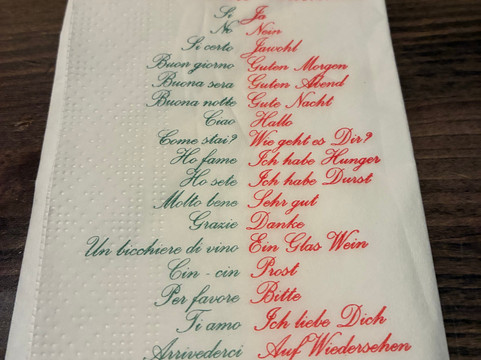 Si Ja
No Nein
Si certo Jawohl
Buon giorno Guten Morgen
Buona sera Guten Abend
Buona notte Gute Nacht
Ciao Hallo
Come stai? Wie geht es Dir?
Ho fame Ich habe Hunger
Ho sete Ich habe Durst
Molto bene Sehr gut
Grazie Danke
Un bicchiere di vino Ein Glas Wein
Cin - cin Prost
Per favore Bitte
Ti amo Ich liebe Dich
Arrivederci Auf Wiedersehen